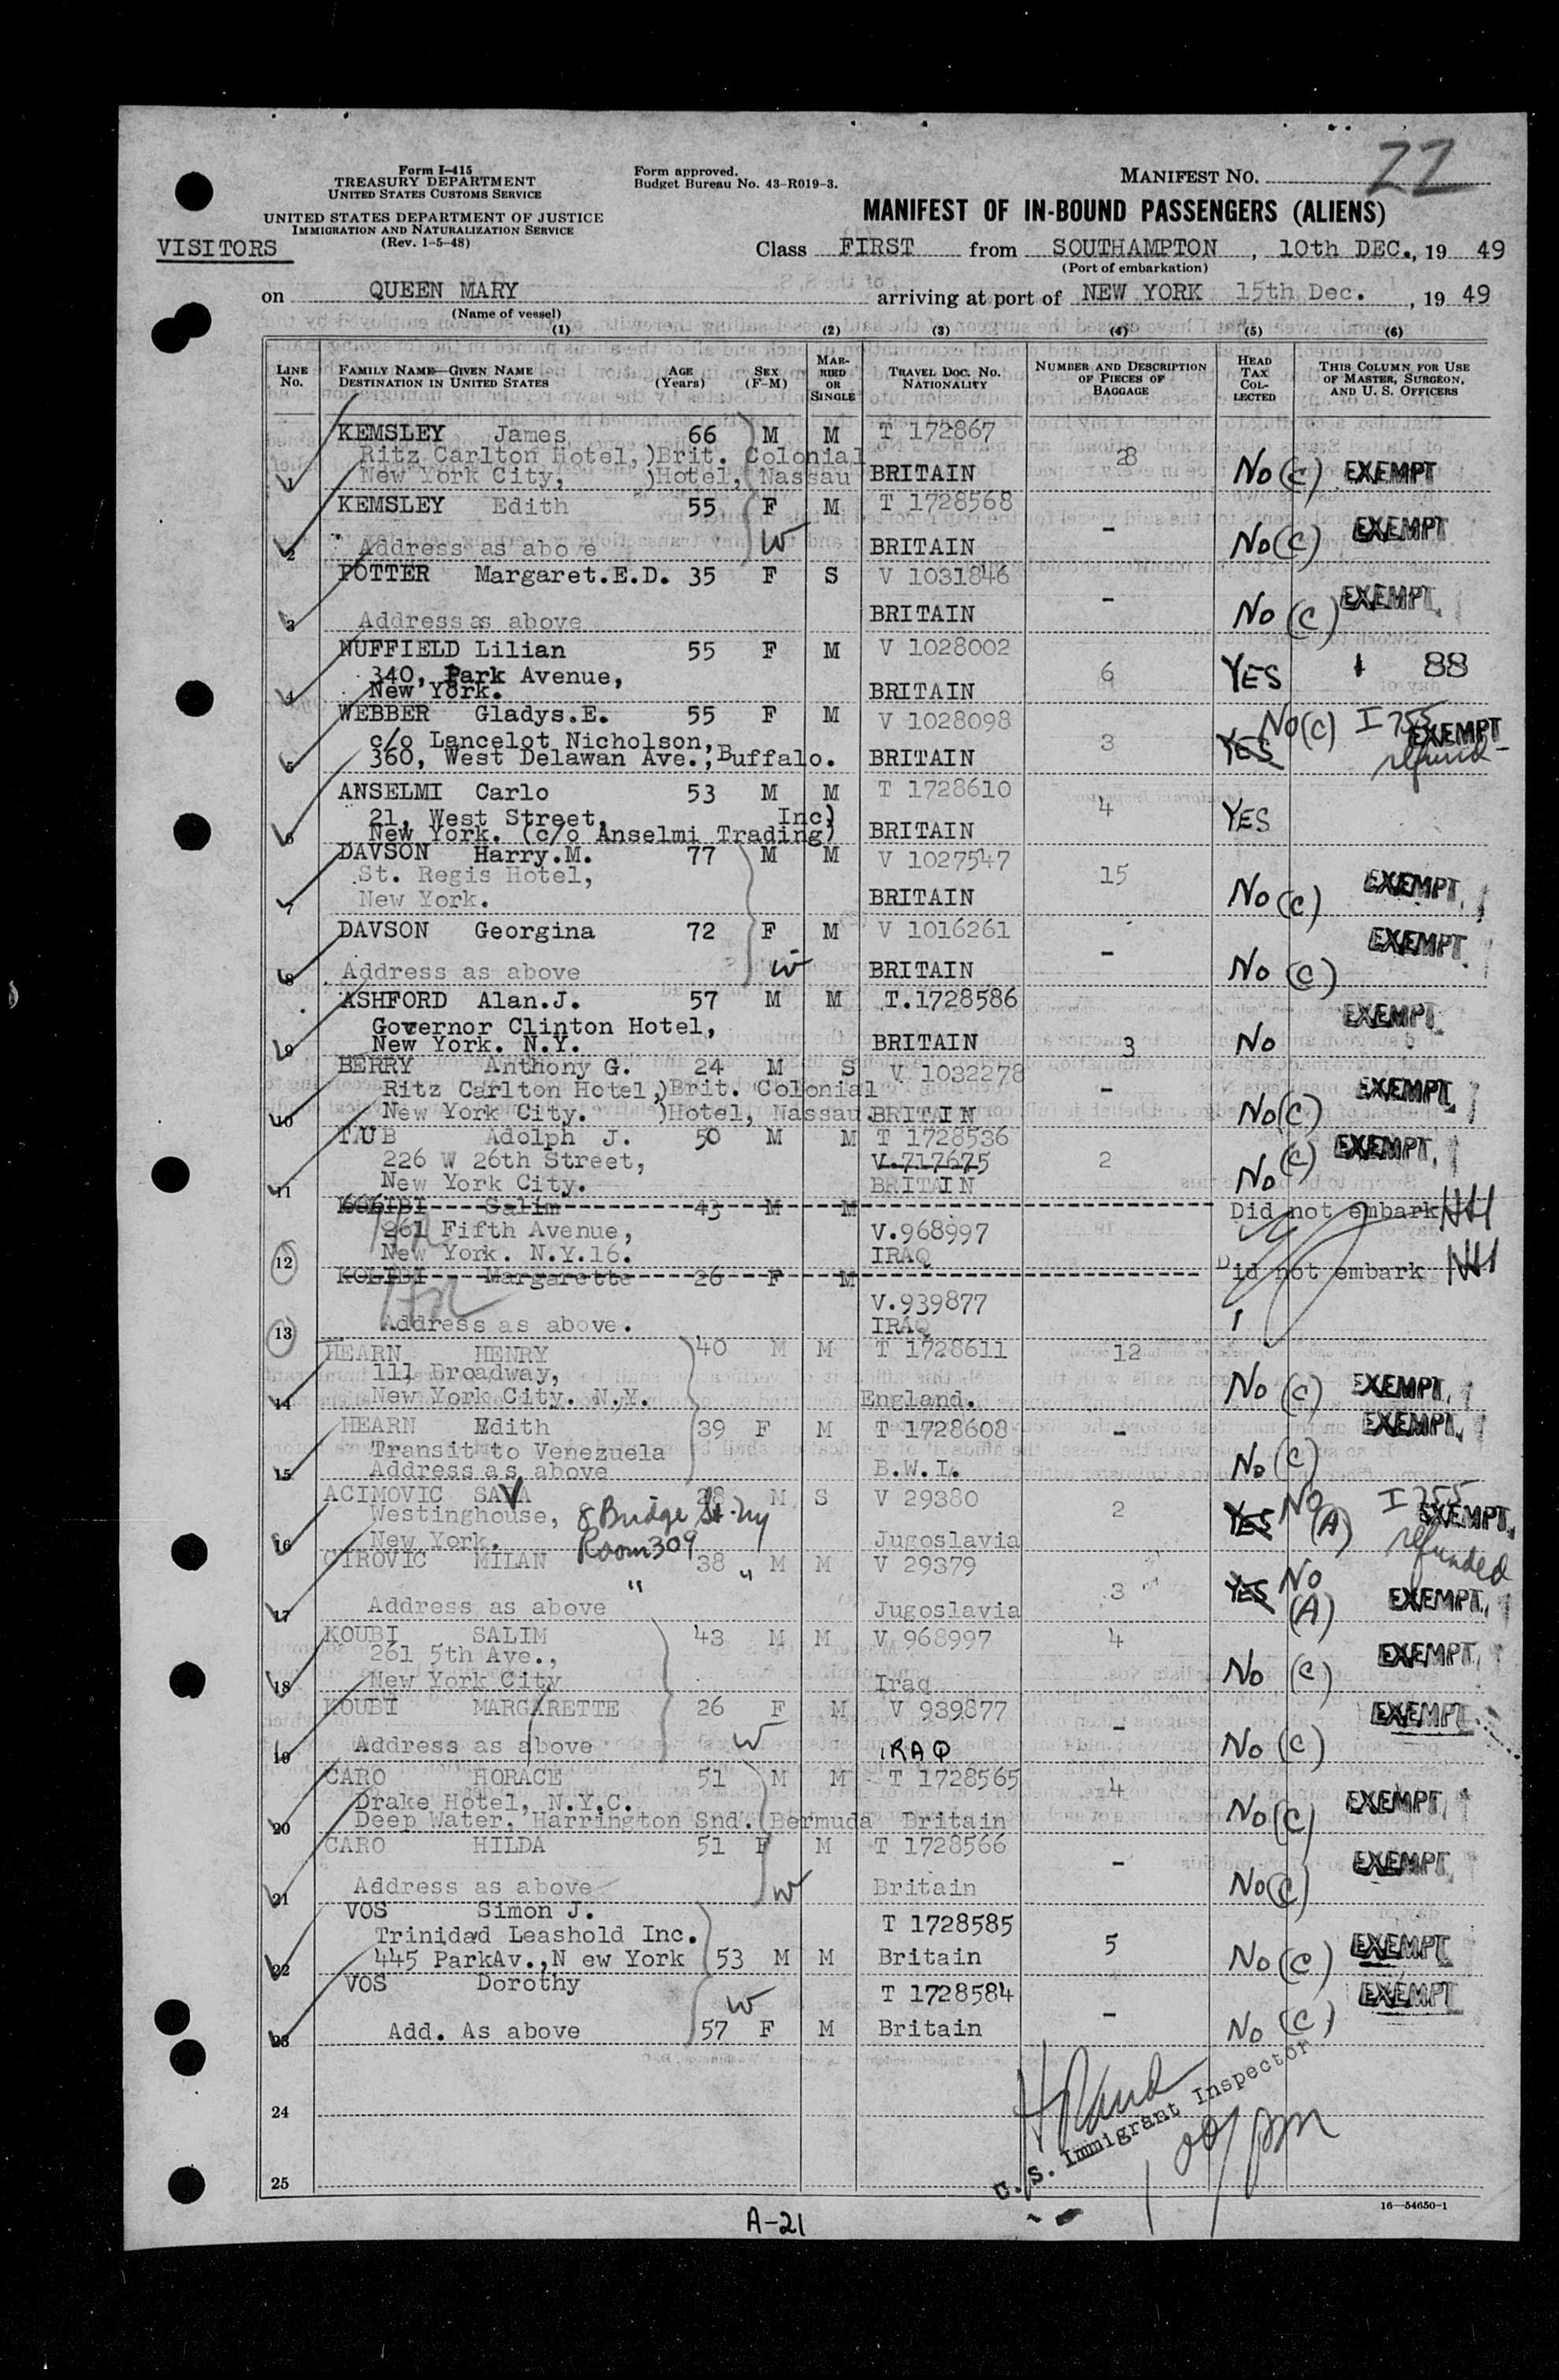 Form I-415
TREASURY DEPARTMENT
UNITED STATES CUSTOMS SERVICE
UNITED STATES DEPARTMENT OF JUSTICE
IMMIGRATION AND NATURALIZATION SERVICE
(Rev. 1-5-48)
VISITORS
Form approved.
Budget Bureau No. 43-R019-3.
MANIFEST NO. 22
MANIFEST OF IN-BOUND PASSENGERS (ALIENS)
Class FIRST from SOUTHAMPTON, 10th DEC., 19 49
(Port of embarkation)
on QUEEN MARY arriving at port of NEW YORK 15th Dec., 19 49
(Name of vessel)
(1) (2) (3) (4) (5) (6)
LINE No. FAMILY NAME—GIVEN NAME DESTINATION IN UNITED STATES AGE (Years) SEX (F-M) MARRIED OR SINGLE TRAVEL DOC. NO. NATIONALITY NUMBER AND DESCRIPTION OF PIECES OF BAGGAGE HEAD TAX COLLECTED THIS COLUMN FOR USE OF MASTER, SURGEON, AND U. S. OFFICERS
KEMSLEY James 66 M M T 172867
Ritz Carlton Hotel,)Brit. Colonial 28
1 New York City, )Hotel, Nassau BRITAIN No (C) EXEMPT
KEMSLEY Edith 55 F M T 1728568
2 Address as above W BRITAIN - No (C) EXEMPT
POTTER Margaret.E.D. 35 F S V 1031846
3 Address as above BRITAIN - No (C) EXEMPT
NUFFIELD Lilian 55 F M V 1028002
340, Park Avenue, 6 YES 1 88
4 New York. BRITAIN
WEBBER Gladys.E. 55 F M V 1028098 No (C) I 755
c/o Lancelot Nicholson, 3 YES EXEMPT
5 360, West Delawan Ave.,Buffalo. BRITAIN refund
ANSELMI Carlo 53 M M T 1728610
21, West Street, Inc) 4 YES
6 New York. (c/o Anselmi Trading) BRITAIN
DAVSON Harry.M. 77 M M V 1027547
St. Regis Hotel, 15
7 New York. BRITAIN No (C) EXEMPT
DAVSON Georgina 72 F M V 1016261
8 Address as above W BRITAIN - No (C) EXEMPT
ASHFORD Alan.J. 57 M M T.1728586
Governor Clinton Hotel,
9 New York. N.Y. BRITAIN 3 No EXEMPT
BERRY Anthony G. 24 M S V 1032278
Ritz Carlton Hotel,)Brit. Colonial -
10 New York City. )Hotel, Nassau. BRITAIN No (C) EXEMPT
Adolph J. 50 M M T 1728536
226 W 26th Street, V.717675 2
11 New York City. BRITAIN No (C) EXEMPT
Salim 43 M M Did not embark
261 Fifth Avenue, V.968997
12 New York. N.Y.16. IRAQ
Margarette 26 F M Did not embark
V.939877
13 Address as above. IRAQ
HEARN HENRY 40 M M T 1728611 12
111 Broadway,
14 New York City. N.Y. England. No (C) EXEMPT
HEARN Edith 39 F M T 1728608 -
Transit to Venezuela
15 Address as above B.W.I. No (C) EXEMPT
ACIMOVIC SAVA 28 M S V 29380
Westinghouse, 8 Bridge St. NY 2 YES No (A) I 755 EXEMPT
16 New York. Room 309 Jugoslavia refunded
CIROVIC MILAN 38 M M V 29379
" " 3 YES No (A) EXEMPT
17 Address as above Jugoslavia
KOUBI SALIM 43 M M V 968997 4
261 5th Ave.,
18 New York City Iraq No (C) EXEMPT
KOUBI MARGARETTE 26 F M V 939877
19 Address as above W IRAQ - No (C) EXEMPT
CARO HORACE 51 M M T 1728565 4
Drake Hotel, N.Y.C.
20 Deep Water, Harrington Snd. Bermuda Britain No (C) EXEMPT
CARO HILDA 51 F M T 1728566
21 Address as above W Britain - No (C) EXEMPT
VOS Simon J.
Trinidad Leashold Inc. T 1728585
22 445 ParkAv.,N ew York 53 M M Britain 5 No (C) EXEMPT
VOS Dorothy T 1728584
W
23 Add. As above 57 F M Britain - No (C) EXEMPT
24
U. S. Immigrant Inspector
25
16—54650-1
A-21